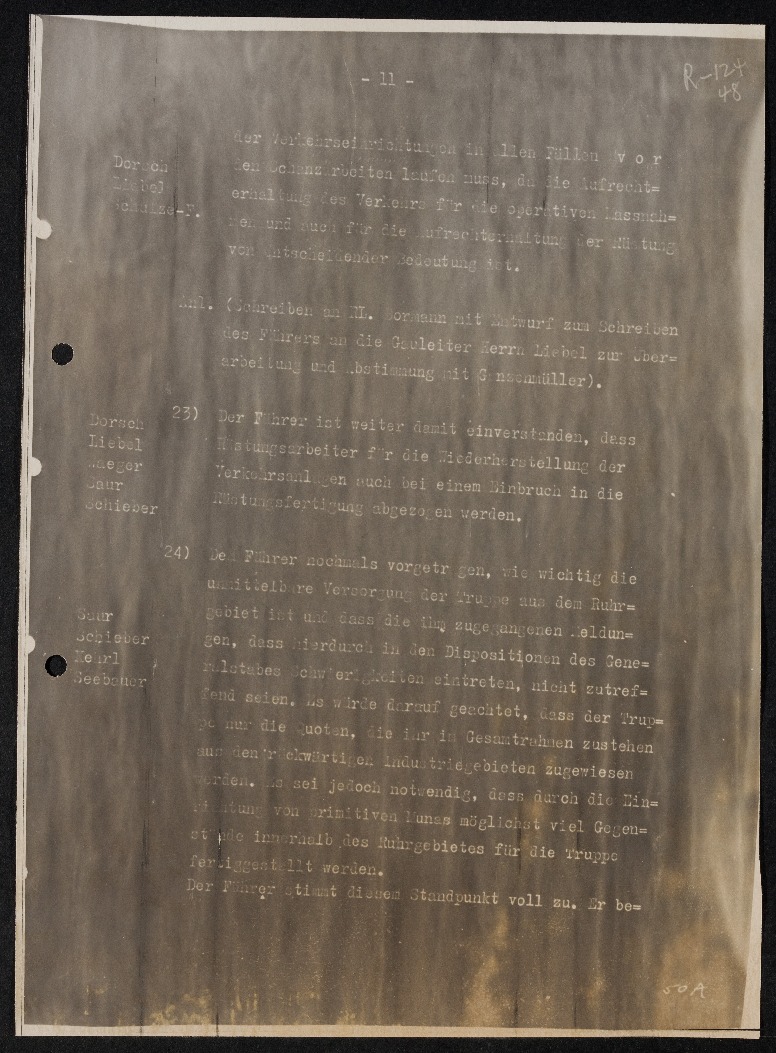 - 11 -
R-124
48
der Verkehrseinrichtungen in allen Fällen v o r
Dorsch
den Schanzarbeiten laufen muss, da die Aufrecht=
Liebel
erhaltung des Verkehrs für die operativen Massnah=
Schulze-F.
men und auch für die Aufrechterhaltung der Rüstung
von entscheidender Bedeutung ist.
Anl. (Schreiben an RL. Bormann mit Entwurf zum Schreiben
des Führers an die Gauleiter Herrn Liebel zur Über=
arbeitung und Abstimmung mit Ganzenmüller).
Dorsch
Liebel
Saur
Schieber
23) Der Führer ist weiter damit einverstanden, dass
Rüstungsarbeiter für die Wiederherstellung der
Verkehrsanlagen auch bei einem Einbruch in die
Rüstungsfertigung abgezogen werden.
24) Dem Führer nochmals vorgetragen, wie wichtig die
unmittelbare Versorgung der Truppe aus dem Ruhr=
gebiet ist und dass die ihm zugegangenen Meldun=
Saur
Schieber
Kehrl
Seebauer
gen, dass hierdurch in den Dispositionen des Gene=
ralstabes Schwierigkeiten eintreten, nicht zutref=
fend seien. Es würde darauf geachtet, dass der Trup=
pe nur die Quoten, die ihr im Gesamtrahmen zustehen
aus den rückwärtigen Industriegebieten zugewiesen
werden. Es sei jedoch notwendig, dass durch die Ein=
richtung von primitiven Munas möglichst viel Gegen=
stände innerhalb des Ruhrgebietes für die Truppe
fertiggestellt werden.
Der Führer stimmt diesem Standpunkt voll zu. Er be=
50A